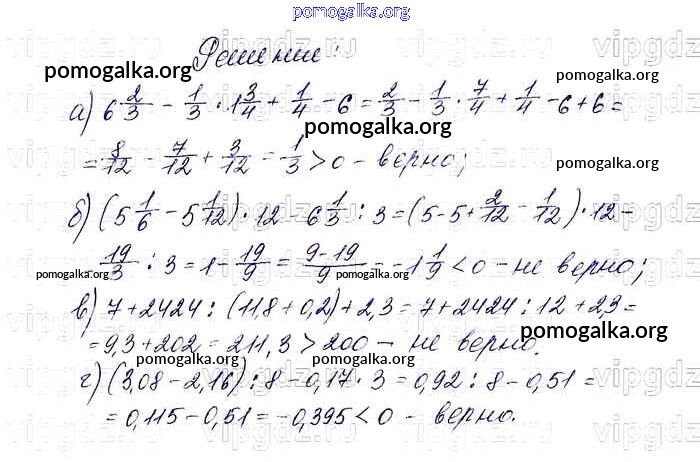 pomogalka.org
Решение:
а) 6 2/3 - 1/3 · 1 3/4 + 1/4 - 6 = 2/3 - 1/3 · 7/4 + 1/4 - 6 + 6 =
= 8/12 - 7/12 + 3/12 = 1/3 > 0 - верно;
б) (5 1/6 - 5 1/12) · 12 - 6 1/3 : 3 = (5 - 5 + 2/12 - 1/12) · 12 -
19/3 : 3 = 1 - 19/9 = 9-19/9 = -1 1/9 < 0 - не верно;
в) 7 + 2424 : (11,8 + 0,2) + 2,3 = 7 + 2424 : 12 + 2,3 =
= 9,3 + 202 = 211,3 > 200 - не верно.
г) (3,08 - 2,16) : 8 - 0,17 · 3 = 0,92 : 8 - 0,51 =
= 0,115 - 0,51 = -0,395 < 0 - верно.
pomogalka.org
pomogalka.org
pomogalka.org
pomogalka.org
pomogalka.org
pomogalka.org
pomogalka.org
pomogalka.org
pomogalka.org
pomogalka.org